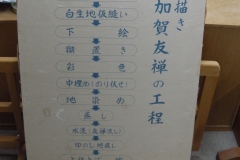 描き
加賀友禅の工程
白生地仮縫い
下絵
糊置き
彩色
中埋め(のり伏せ)
地染め
蒸し
水洗(友禅流し)